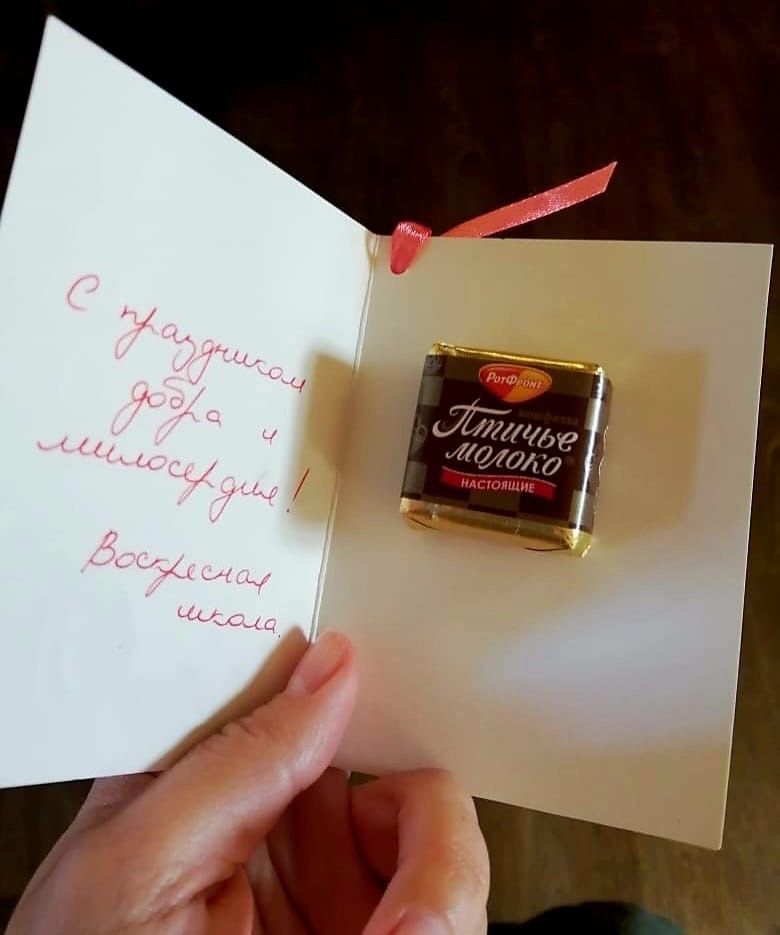 С праздником
добра и
милосердия!
Воскресная
школа.
РотФронт
конфеты
Птичье
молоко
НАСТОЯЩИЕ